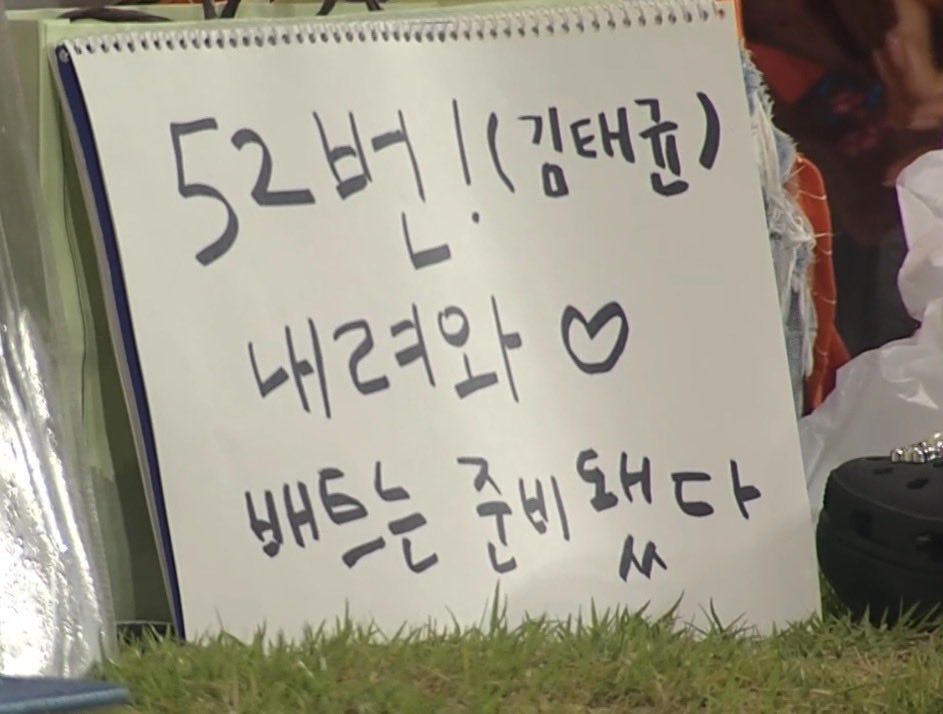 52번! (김태균)
내려와 ♡
배트는 준비됐다